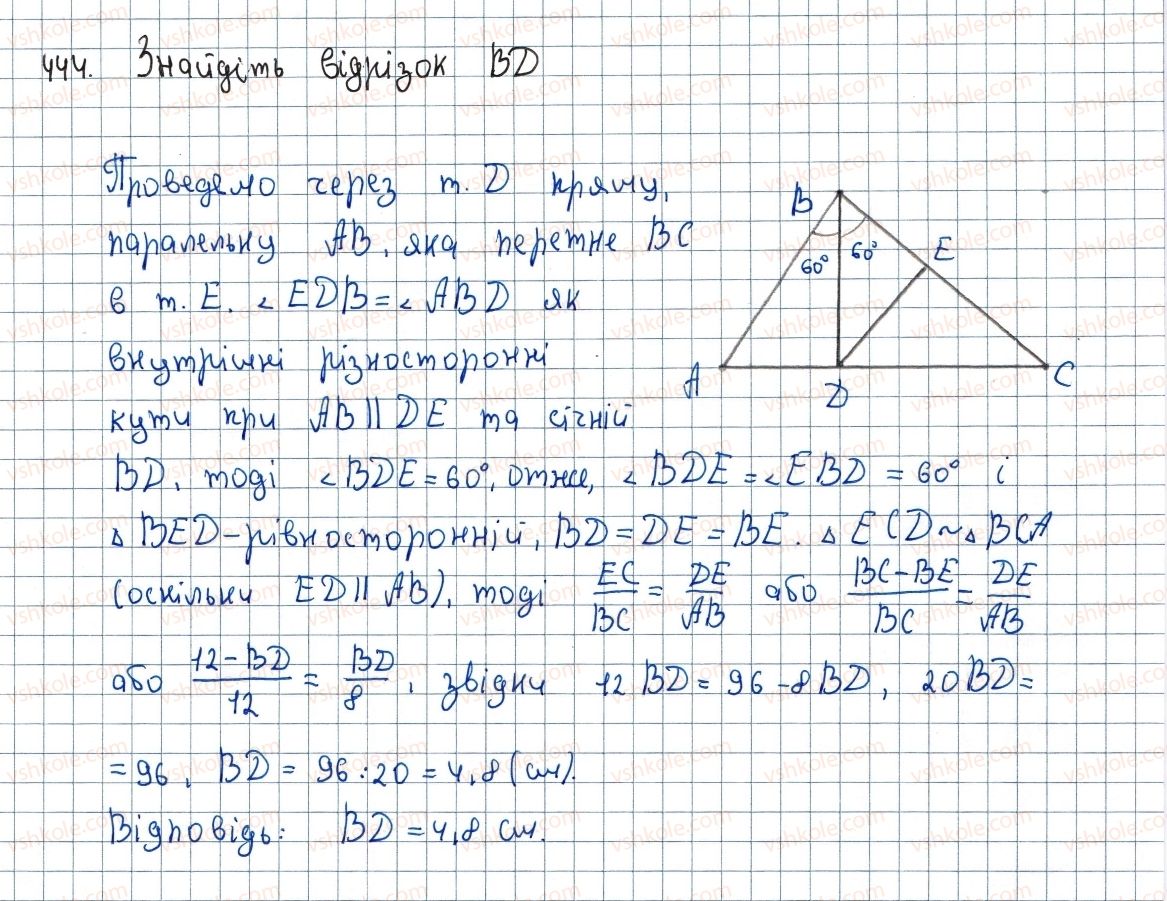 444. Знайдіть відрізок BD
Проведемо через т. D пряму,
паралельну AB, яка перетне BC
в т. E. ∠EDB = ∠ABD як
внутрішні різносторонні
кути при AB || DE та січній
BD, тоді ∠BDE = 60°, отже, ∠BDE = ∠EBD = 60° і
△BED - рівносторонній, BD = DE = BE. △ECD ~ △BCA
(оскільки ED || AB), тоді EC/BC = DE/AB або (BC - BE)/BC = DE/AB
або (12 - BD)/12 = BD/8, звідки 12BD = 96 - 8BD, 20BD =
= 96, BD = 96 : 20 = 4,8 (см).
Відповідь: BD = 4,8 см.
B
60°
60°
E
A
D
C
vshkole.com